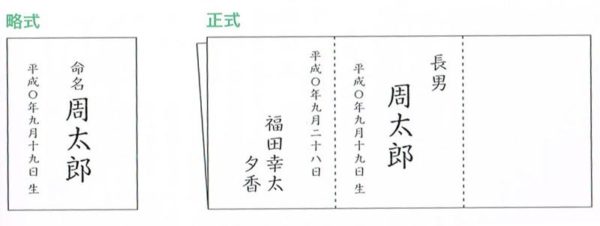 略式
命名
周太郎
平成〇年九月十九日 生
正式
長男
周太郎
平成〇年九月十九日 生
平成〇年九月二十八日
福田幸太
夕香